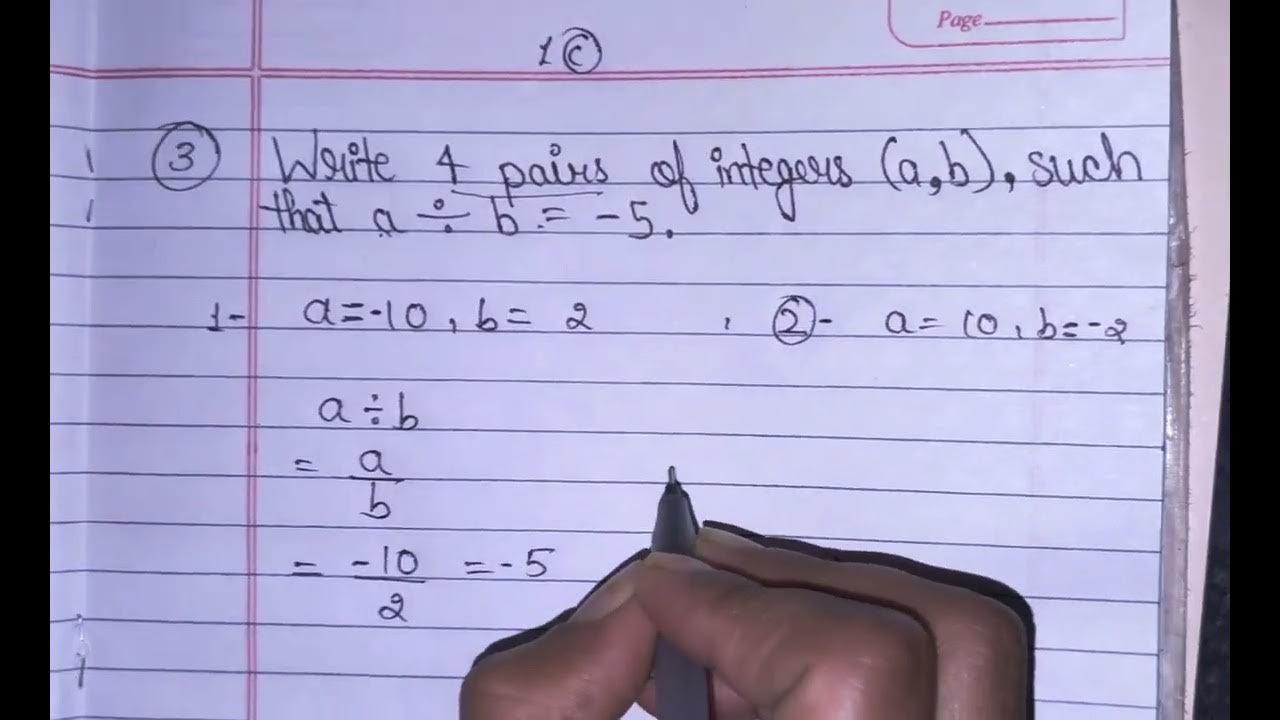 Page
1 ©
③ Write 4 pairs of integers (a,b), such
that a ÷ b = -5.
1- a=-10, b= 2 , ②- a= 10, b=-2
a ÷ b
= a/b
= -10/2 = -5